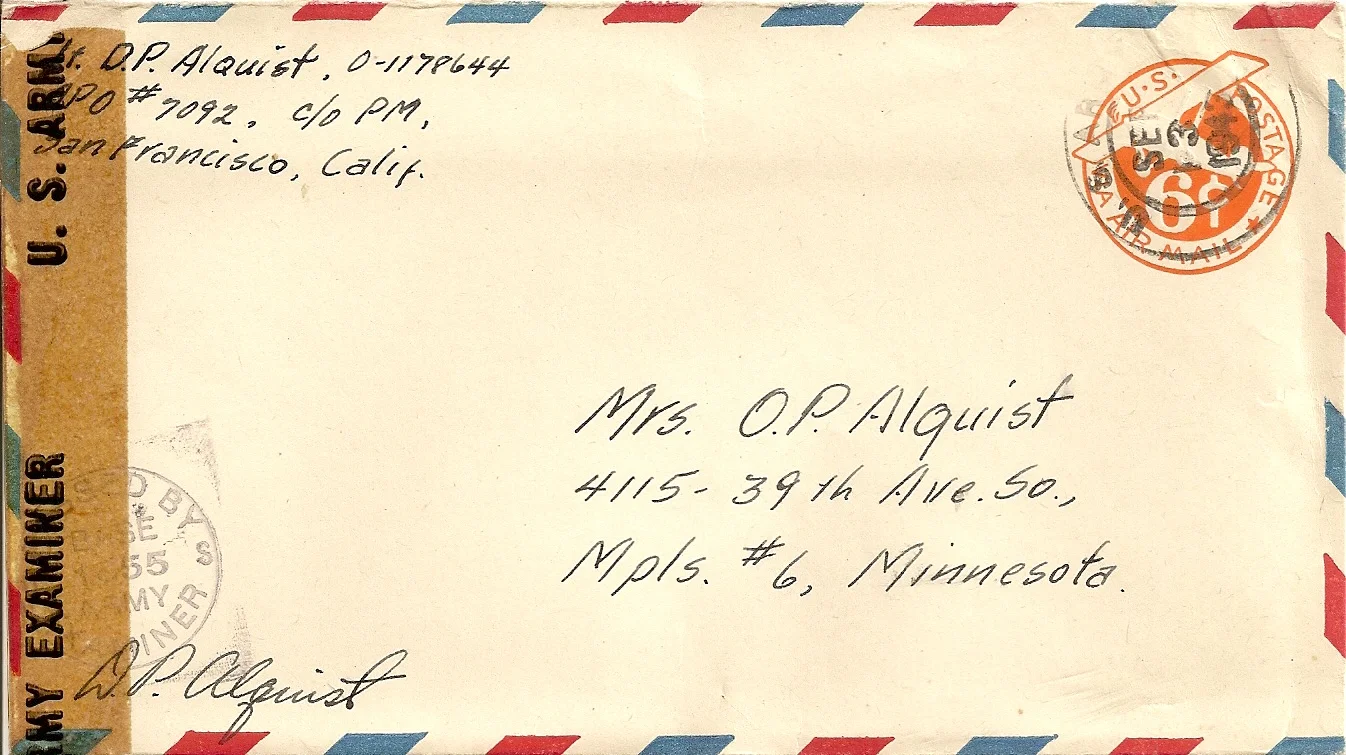 Lt. D.P. Alquist, O-1178644
APO #7092, c/o PM,
San Francisco, Calif.
U.S. POSTAGE
6¢
VIA AIR MAIL
U.S. A
SEP
13
194
Mrs. O.P. Alquist
4115-39th Ave. So.,
Mpls. #6, Minnesota.
U. S. ARMY
ARMY EXAMINER
BY
BASE
55
ARMY
EXAMINER
D.P. Alquist